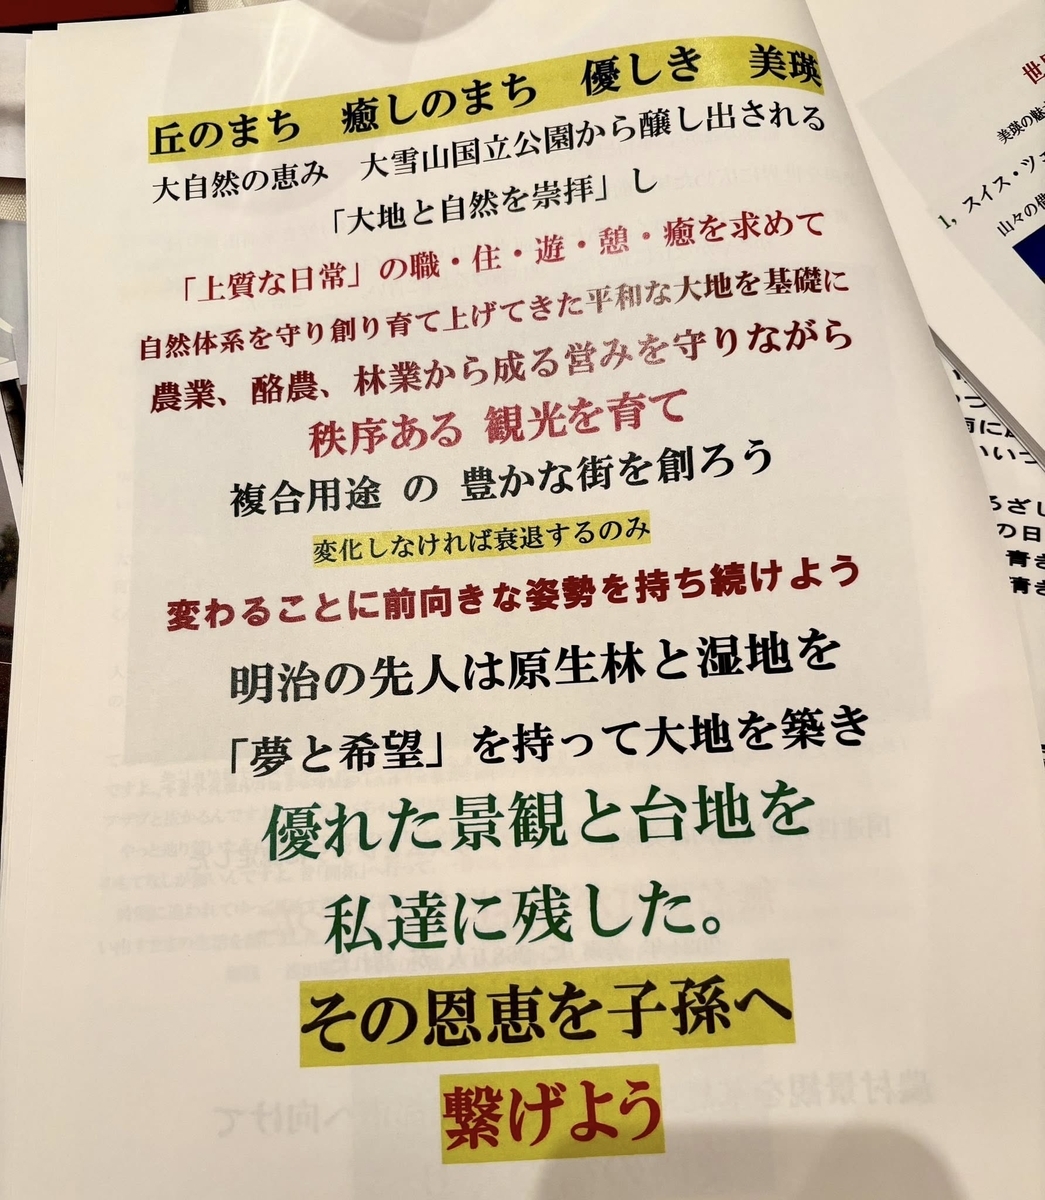 丘のまち　癒しのまち　優しき　美瑛
大自然の恵み　大雪山国立公園から醸し出される
「大地と自然を崇拝」し
「上質な日常」の職・住・遊・憩・癒を求めて
自然体系を守り創り育て上げてきた平和な大地を基礎に
農業、酪農、林業から成る営みを守りながら
秩序ある 観光を育て
複合用途 の 豊かな街を創ろう
変化しなければ衰退するのみ
変わることに前向きな姿勢を持ち続けよう
明治の先人は原生林と湿地を
「夢と希望」を持って大地を築き
優れた景観と台地を
私達に残した。
その恩恵を子孫へ
繋げよう
美瑛の魅
1, スイス・ツ
山々の
の日
青き
青き